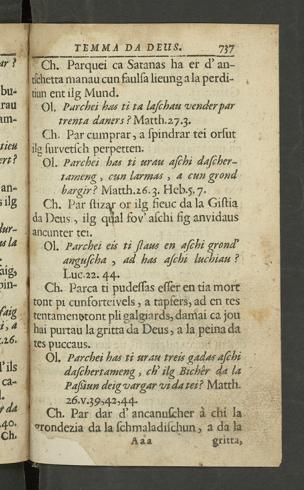 TEMMA DA DEUS. 737
Ch. Parquei ca Satanas ha er d' an-
tſchetta manau cun faulſa lieung a la perdi-
tiun ent ilg Mund.
Ol. Parchei has ti ta laſchau vender par
trenta daners? Matth. 27. 3.
Ch. Par cumprar, a ſpindrar tei orſut
ilg ſurvetſch perpetten.
Ol. Parchei has ti urau aſchi daſcher-
tameng, cun larmas, a cun grond
bargir? Matth. 26. 3. Heb. 5, 7.
Ch. Par ſtizar or ilg fieuc da la Giſtia
da Deus, ilg qual fov' aſchi ſig anvidaus
ancunter tei.
Ol. Parchei eis ti ſtaus en aſchi grond'
anguſcha, ad has aſchi luchiau?
Luc. 22. 44.
Ch. Parca ti pudeſſas eſſer en tia mort
tont pi cunforteivels, a tapfers, ad en tes
tentamens tont pli galgiards, damai ca jou
hai purtau la gritta da Deus, a la peina da
tes puccaus.
Ol. Parchei has ti urau treis gadas aſchi
daſchertameng, ch' ilg Bichêr da la
Paſſiun deig vargar vi da tei? Matth.
26. v. 39, 42, 44.
Ch. Par dar d' ancanuſcher à chi la
grondezia da la ſchmaladiſchun, a da la
Aaa gritta,